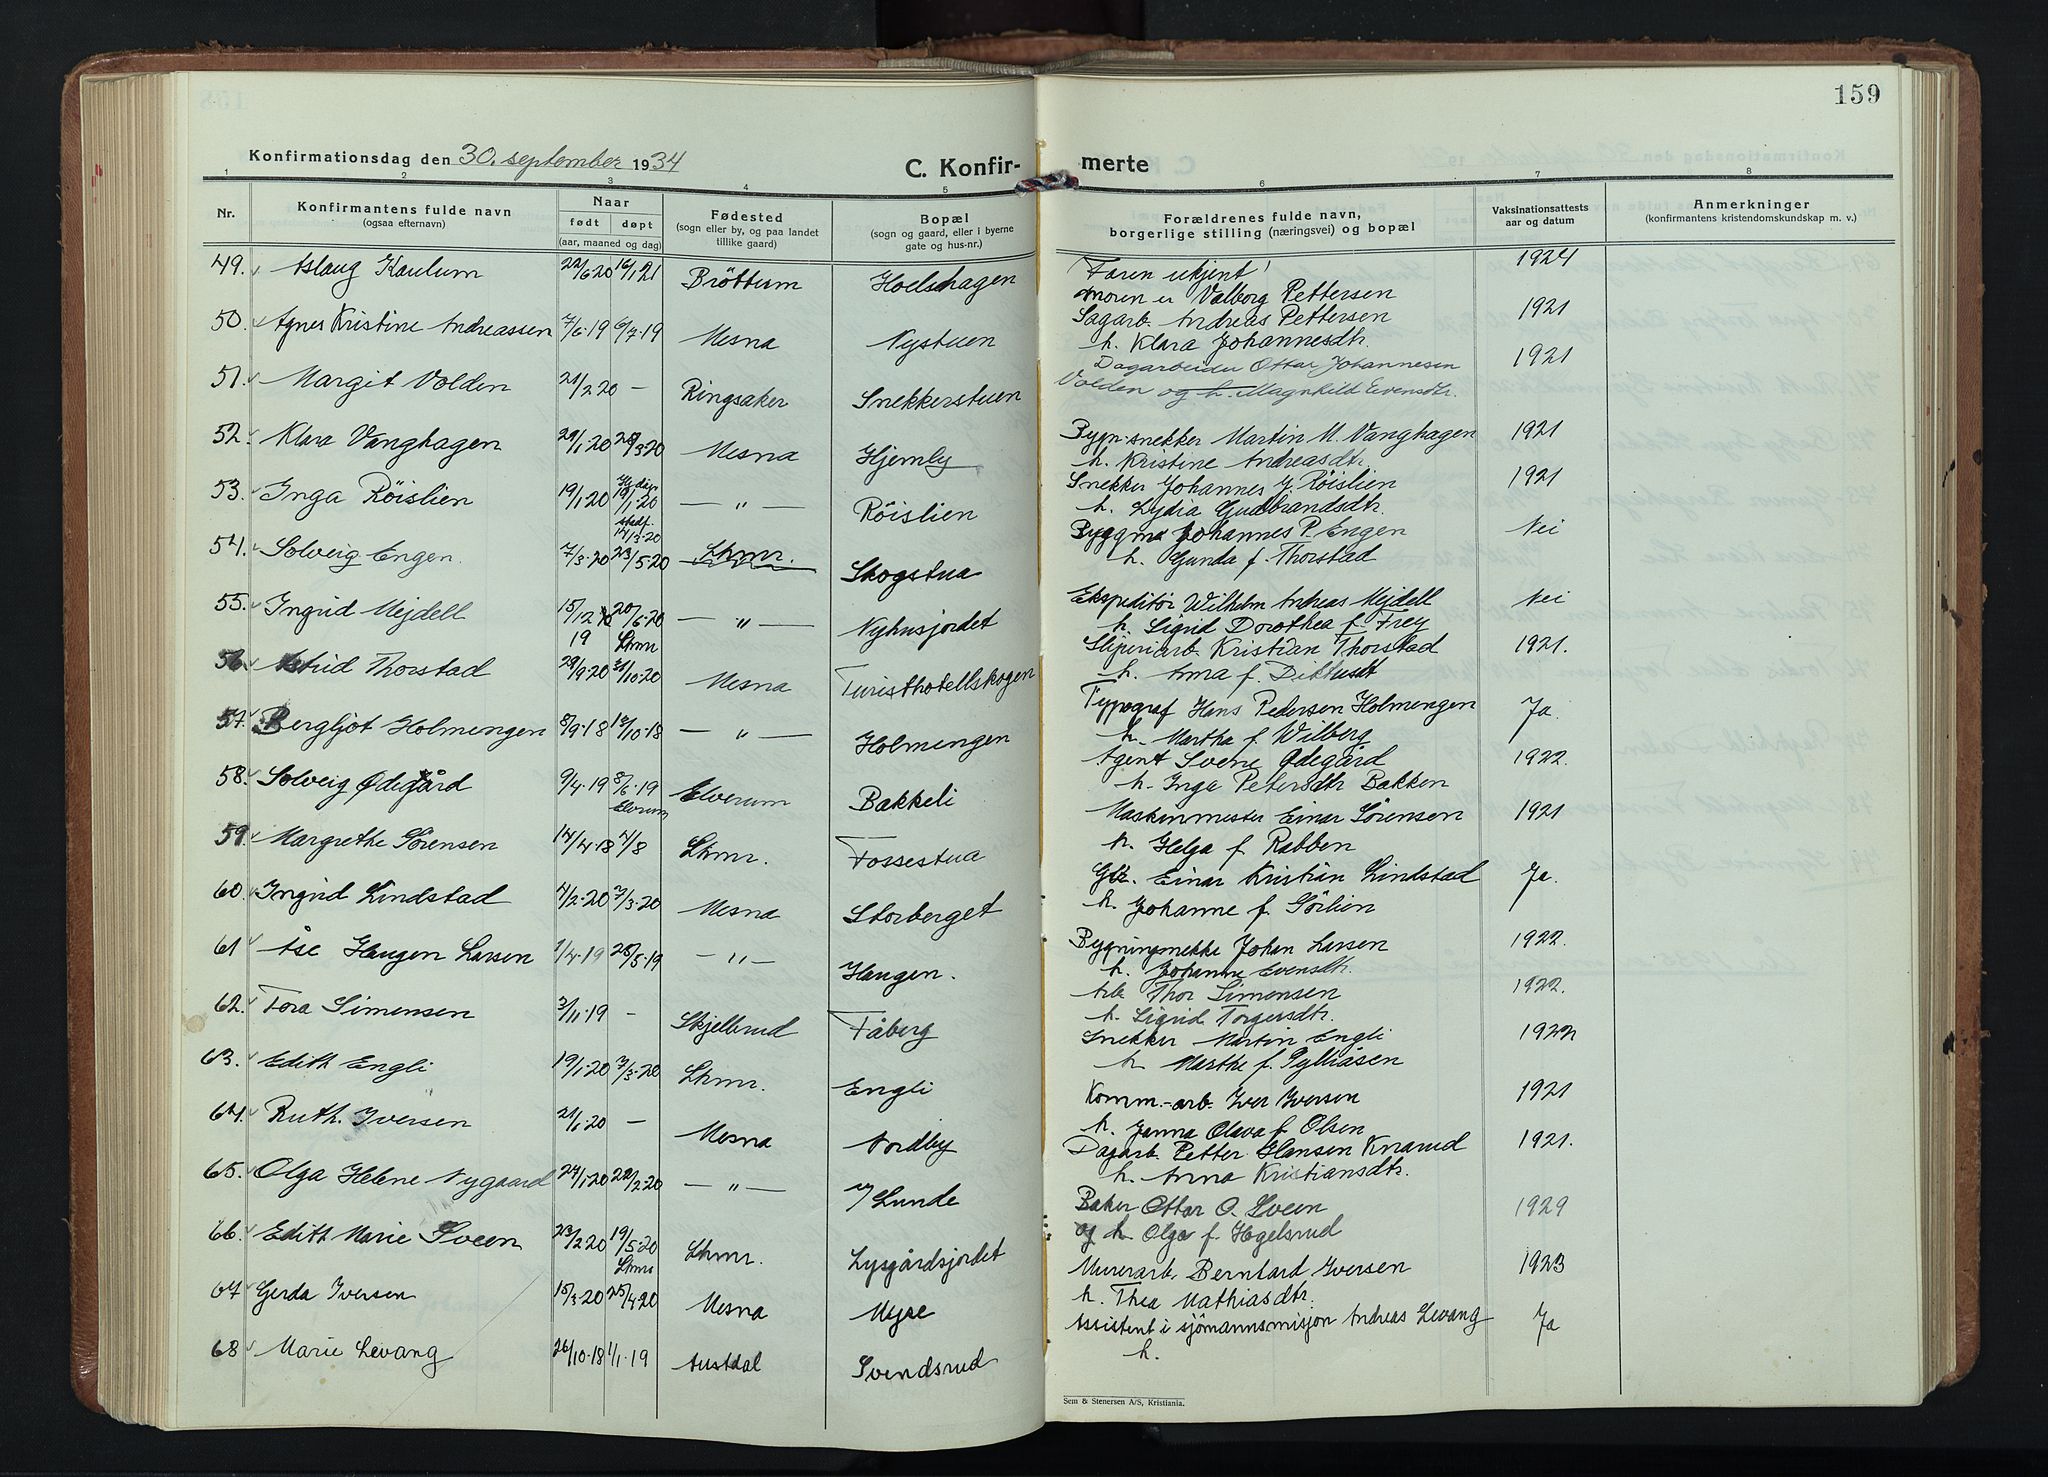 159
Konfirmationsdag den 30. september 1934
C. Konfir-merte
1 2 3 4 5 6 7 8
Nr. Konfirmantens fulde navn (ogsaa efternavn) Naar født døpt (aar, maaned og dag) Fødested (sogn eller by, og paa landet tillike gaard) Bopæl (sogn og gaard, eller i byerne gate og hus-nr.) Forældrenes fulde navn, borgerlige stilling (næringsvei) og bopæl Vaksinationsattests aar og datum Anmerkninger (konfirmantens kristendomskundskap m. v.)
49. Aslaug Kaulum 22/6 20 16/1 21 Bröttum Hoelshagen Faren ukjent! 1924
moren er Valborg Pettersen
50. Agnes Kristine Andreassen 7/6-19 6/7-19 Mesna Nystuen Sagarb. Andreas Pettersen 1921
h. Klara Johannesdtr.
51. Margit Volden 21/2 20 — Ringsaker Snekkerstuen Dagarbeider Ottar Johannesen 1921
Volden og h. Magnhild Evensdtr.
52. Klara Vanghagen 29/1-20 28/3-20 Mesna Hjemly Bygn.snekker Martin M. Vanghagen 1921
h. Kristine Andreasdtr.
53. Inga Röislien 19/1 20 Hj.døpt 19/1-20 stadf. 14/3-20 — " — Röislien Snekker Johannes J. Röislien 1921
h. Lydia Gudbrandsdtr.
54. Solveig Engen 7/3-20 23/5-20 Lhmr. Skogstua Byggm. Johannes P. Engen Nei
h. Gunda f. Thorstad
55. Ingrid Mejdell 15/12 19 20/6-20 Lhmr — " — Nyhusjordet Ekspeditør Wilhelm Andreas Mejdell Nei
h. Sigrid Dorothea f. Frey
56. Astrid Thorstad 29/9-20 31/10-20 Mesna Turisthotellskogen Sliperiarb. Kristian Thorstad 1921.
h. Anna f.
57. Bergljot Holmengen 8/9-18 13/10-18 — " — Holmengen Typograf Hans Pedersen Holmengen Ja.
h. Martha f. Wilberg
58. Solveig Ødegård 9/4-19 8/6-19 Elverum Elverum Bakkeli Agent Svene Ødegård 1922.
h. Inga Petersdtr Bakken
59. Margrethe Sörensen 14/4-18 4/8 Lhmr. Fossestua Maskinmester Einar Sörensen 1921
h. Helga f. Rabben
60. Ingrid Lindstad 4/2-20 7/3-20 Mesna Storberget Einar Kristian Lindstad Ja.
h. Johanne f. Sörlien
61 Åse Haugen Larsen 1/4-19 28/5-19 — " — Haugen. Bygningsnekke Johan Larsen 1922.
h. Johanne Evensdtr.
62. Tora Simensen 3/11-19 — Skjellerud Fåberg Arb Thor Simensen 1922.
h. Sigrid Torgersdtr.
63. Edith Engli 19/1-20 7/3-20 Lhmr. Engli Snekker Martin Engli 1922
h Marthe f. Pylliåsen
64. Ruth Iversen 21/1-20 — Mesna Nordby Komm.-arb. Iver Iversen 1921
h. Janna Olava f. Olsen
65. Olga Helene Nygaard 24/1 20 22/2-20 — " — Y Lunde Dagarb. Petter Hansen Knarud 1921.
h. Anna Kristiansdtr.
66. Edith Marie Sveen 23/2 20 19/5-20 Lhmr Lhmr. Lysgårdsjordet Baker Ottar O. Sveen 1929
og h Olga f. Hagelsrud
67 Gerda Iversen 15/3-20 25/4 20 Mesna Myre Murerarb. Berntard Iversen 1923
h. Thea Mathiasdtr.
68 Marie Levang 26/10-18 1/1-19 Austdal Svendsrud Assistent i sjömannsmisjon Andreas Levang Ja
h.
Sem & Stenersen A/S, Kristiania.